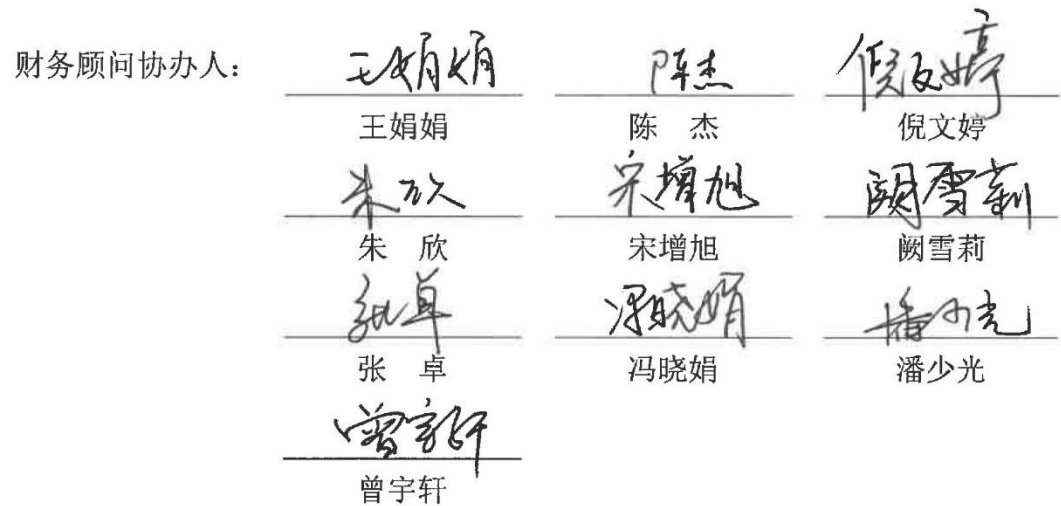 财务顾问协办人： 王娟娟 陈杰 倪文婷
王娟娟 陈 杰 倪文婷
朱欣 宋增旭 阙雪莉
朱 欣 宋增旭 阙雪莉
张卓 冯晓娟 潘少光
张 卓 冯晓娟 潘少光
曾宇轩
曾宇轩